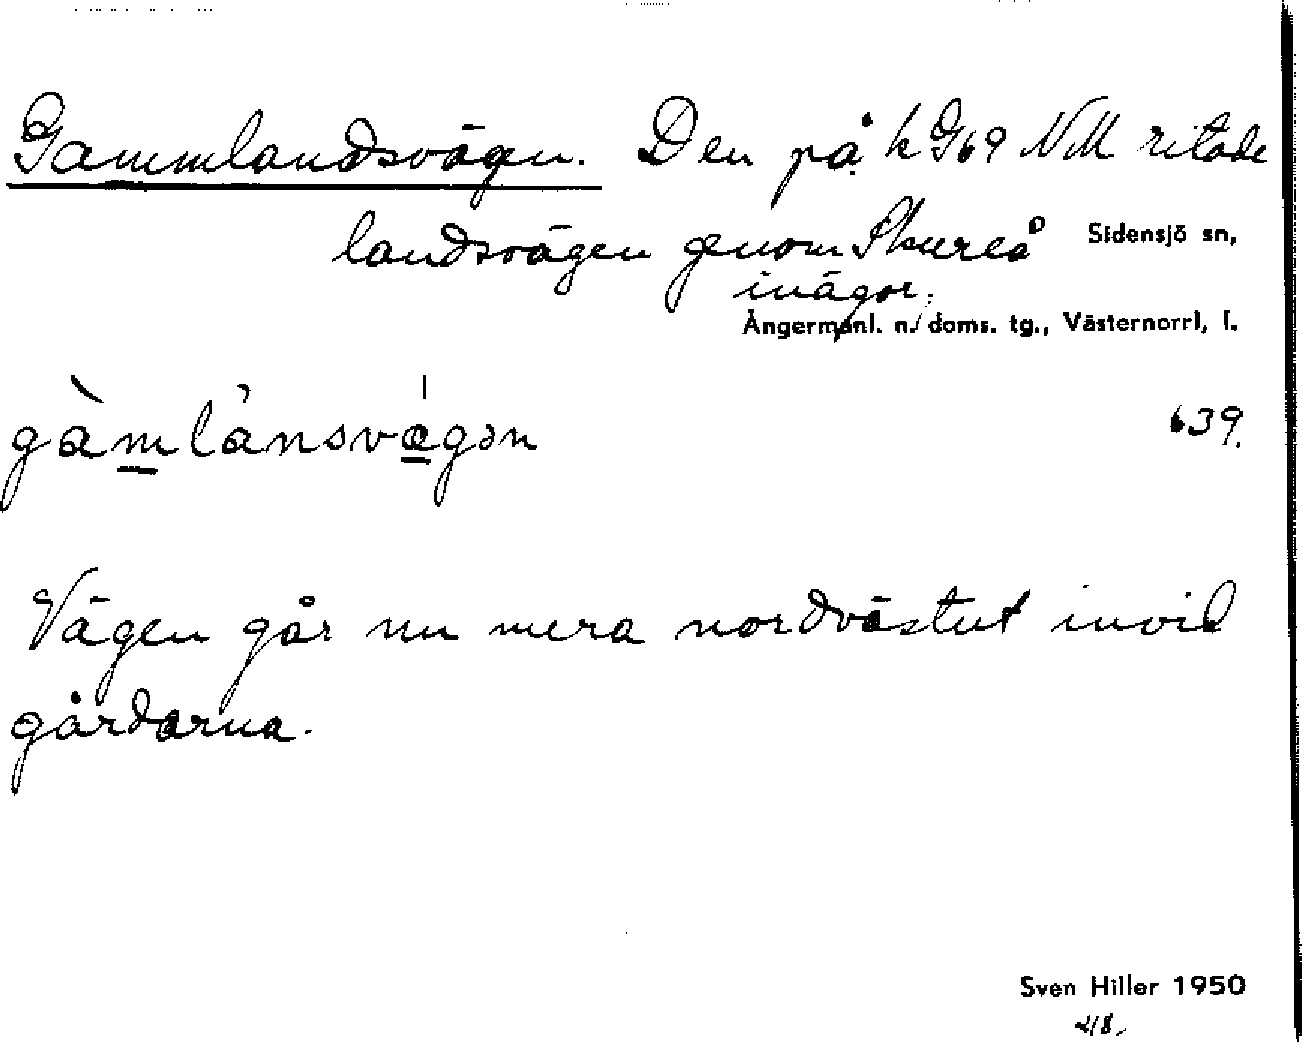 Gammlandsvägen. Den på k G69 NM ritade
landsvägen genom Skureå Sidensjö sn,
inägor.
Ångermanl. n. doms. tg., Västernorrl. l.
gàmlánsvágən 639.
Vägen går nu mera nordvästut invid
gårdarna.
Sven Hiller 1950